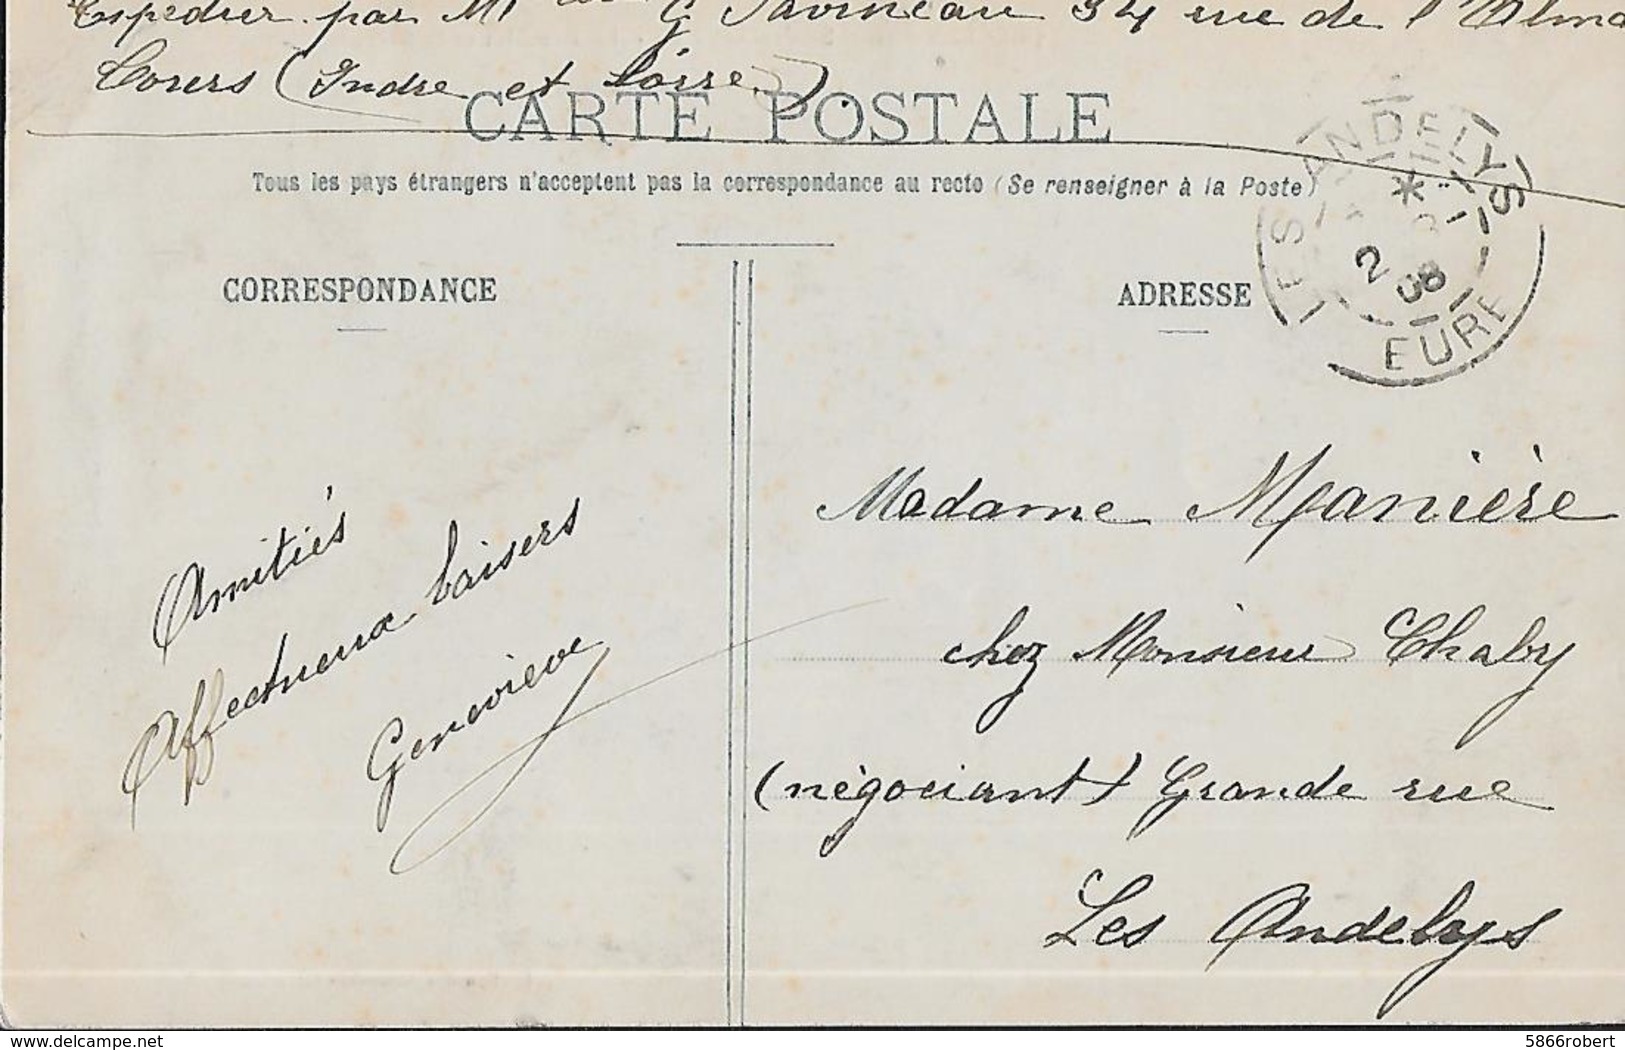 Expédier par Mlle G Savineau 34 rue de l'Alma
Tours (Indre et Loire)
CARTE POSTALE
Tous les pays étrangers n'acceptent pas la correspondance au recto (Se renseigner à la Poste)
CORRESPONDANCE
ADRESSE
LES ANDELYS
*
2
08
EURE
Amitiés
Affectueux baisers
Geneviève
Madame Manière
chez Monsieur Chaby
(négociant) Grande rue
Les Andelys
www.delcampe.net
5866robert